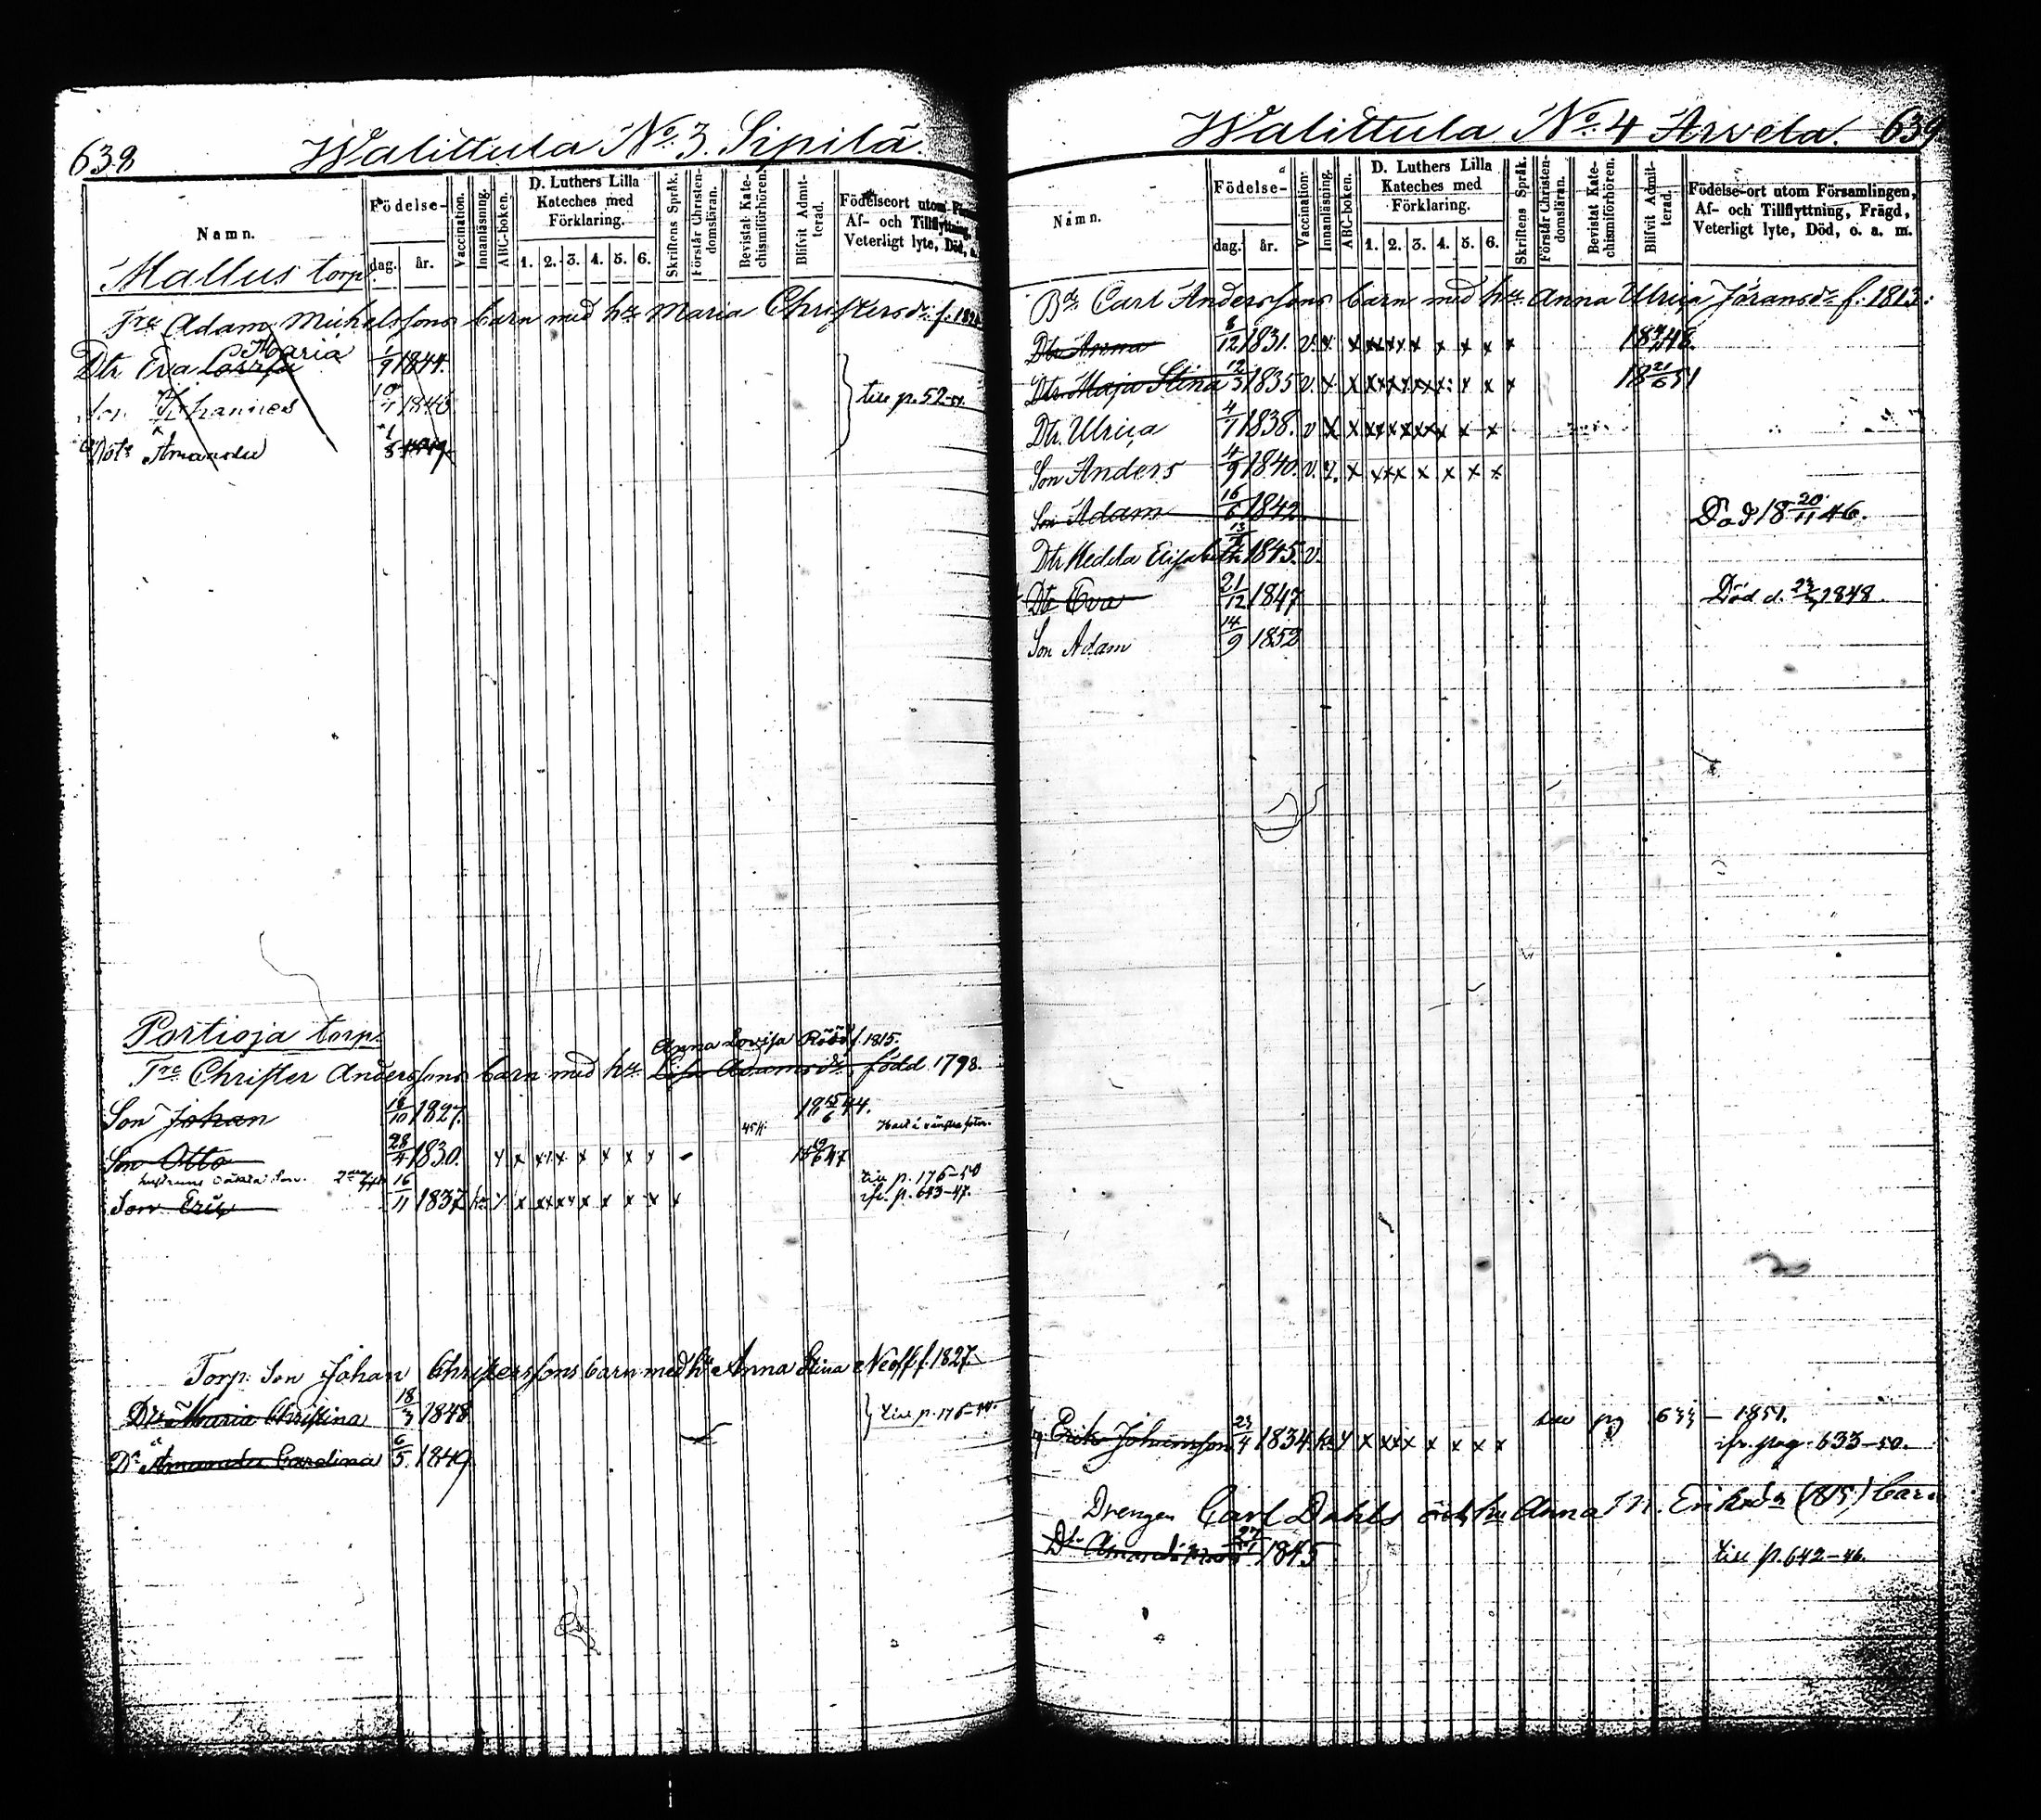 638
Walittula No. 3. Sipilä.
Namn.
Födelse-
dag.
år.
Vaccination.
Innanläsning.
ABC-boken.
D. Luthers Lilla
Kateches med
Förklaring.
1. 2. 3. 4. 5. 6.
Skriftens Språk.
Förstår Christen-
domsläran.
Bevistat Kate-
chismiförhören.
Blifvit Admit-
terad.
Födelseort utom
Af- och Tillflyttning,
Veterligt lyte, Död,
Mallus torp.
Tre Adam Michelssons barn med hu Maria Christersdr. f.
Dtr Eva Maria 1844.
Son Johannes
Dotr Amanda
till p. 52-51.
Portioja torp.
Anna Lovisa Röös f. 1815.
Tre Christer Anderssons barn med hu Lisa Adamsdr född 1798.
Son Johan 18/10 1827. 18 15/6 44.
Son Otto 28/4 1830. x x x x x x x
Son Erik 16/11 1837 x x x x x x x x x
till p. 176-50
ifr. p. 643-47.
Torp. Son Johan Christerssons barn med hu Anna Stina Neoff f. 1827.
Dtr Maria Christina 18/3 1848
Dr Amanda Carolina 6/5 1849
till p. 176-50.
Walittula No. 4 Arvela. 639
Namn.
Födelse-
dag.
år.
Vaccination.
Innanläsning.
ABC-boken.
D. Luthers Lilla
Kateches med
Förklaring.
1. 2. 3. 4. 5. 6.
Skriftens Språk.
Förstår Christen-
domsläran.
Bevistat Kate-
chismiförhören.
Blifvit Admit-
terad.
Födelse-ort utom Församlingen,
Af- och Tillflyttning, Frägd,
Veterligt lyte, Död, o. a. m.
Bdn Carl Anderssons barn med hu Anna Ulrica Jöransdr f. 1813.
Dtr Anna 8/12 1831. v. x x x x x x x x x x
Dtr Maja Stina 12/3 1835 v. x x x x x x x x x x 18 21/6 51
Dtr Ulrica 4/7 1838. v x x x x x x x x x
Son Anders 4/9 1840. v. x. x x x x x x x x
Son Adam 16/6 1842 Död 18 20/11 46.
Dtr Hedda Elisabeth 1845. v.
Dtr Eva 21/12 1847 Död d. 1848.
Son Adam 14/9 1852
Erik Johansson 23/4 1834 x x x x x x x x
633 - 1851.
ifr. pag. 633-50.
Drengen Carl Dahls och hu Anna M. Eriksdr (1815) barn
Dtr 1845 till p. 642-46.